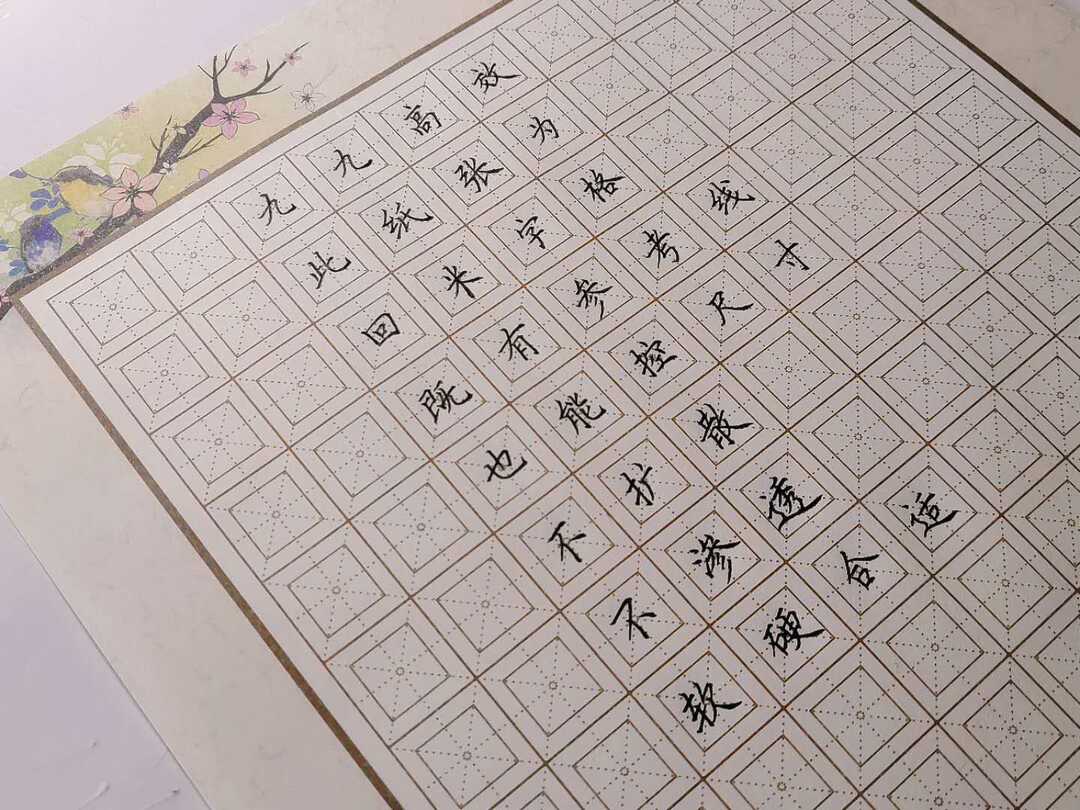 九九高效
此纸张为
回米字格
既有参考线
也能控尺寸
不扩散
不渗透
软硬合适